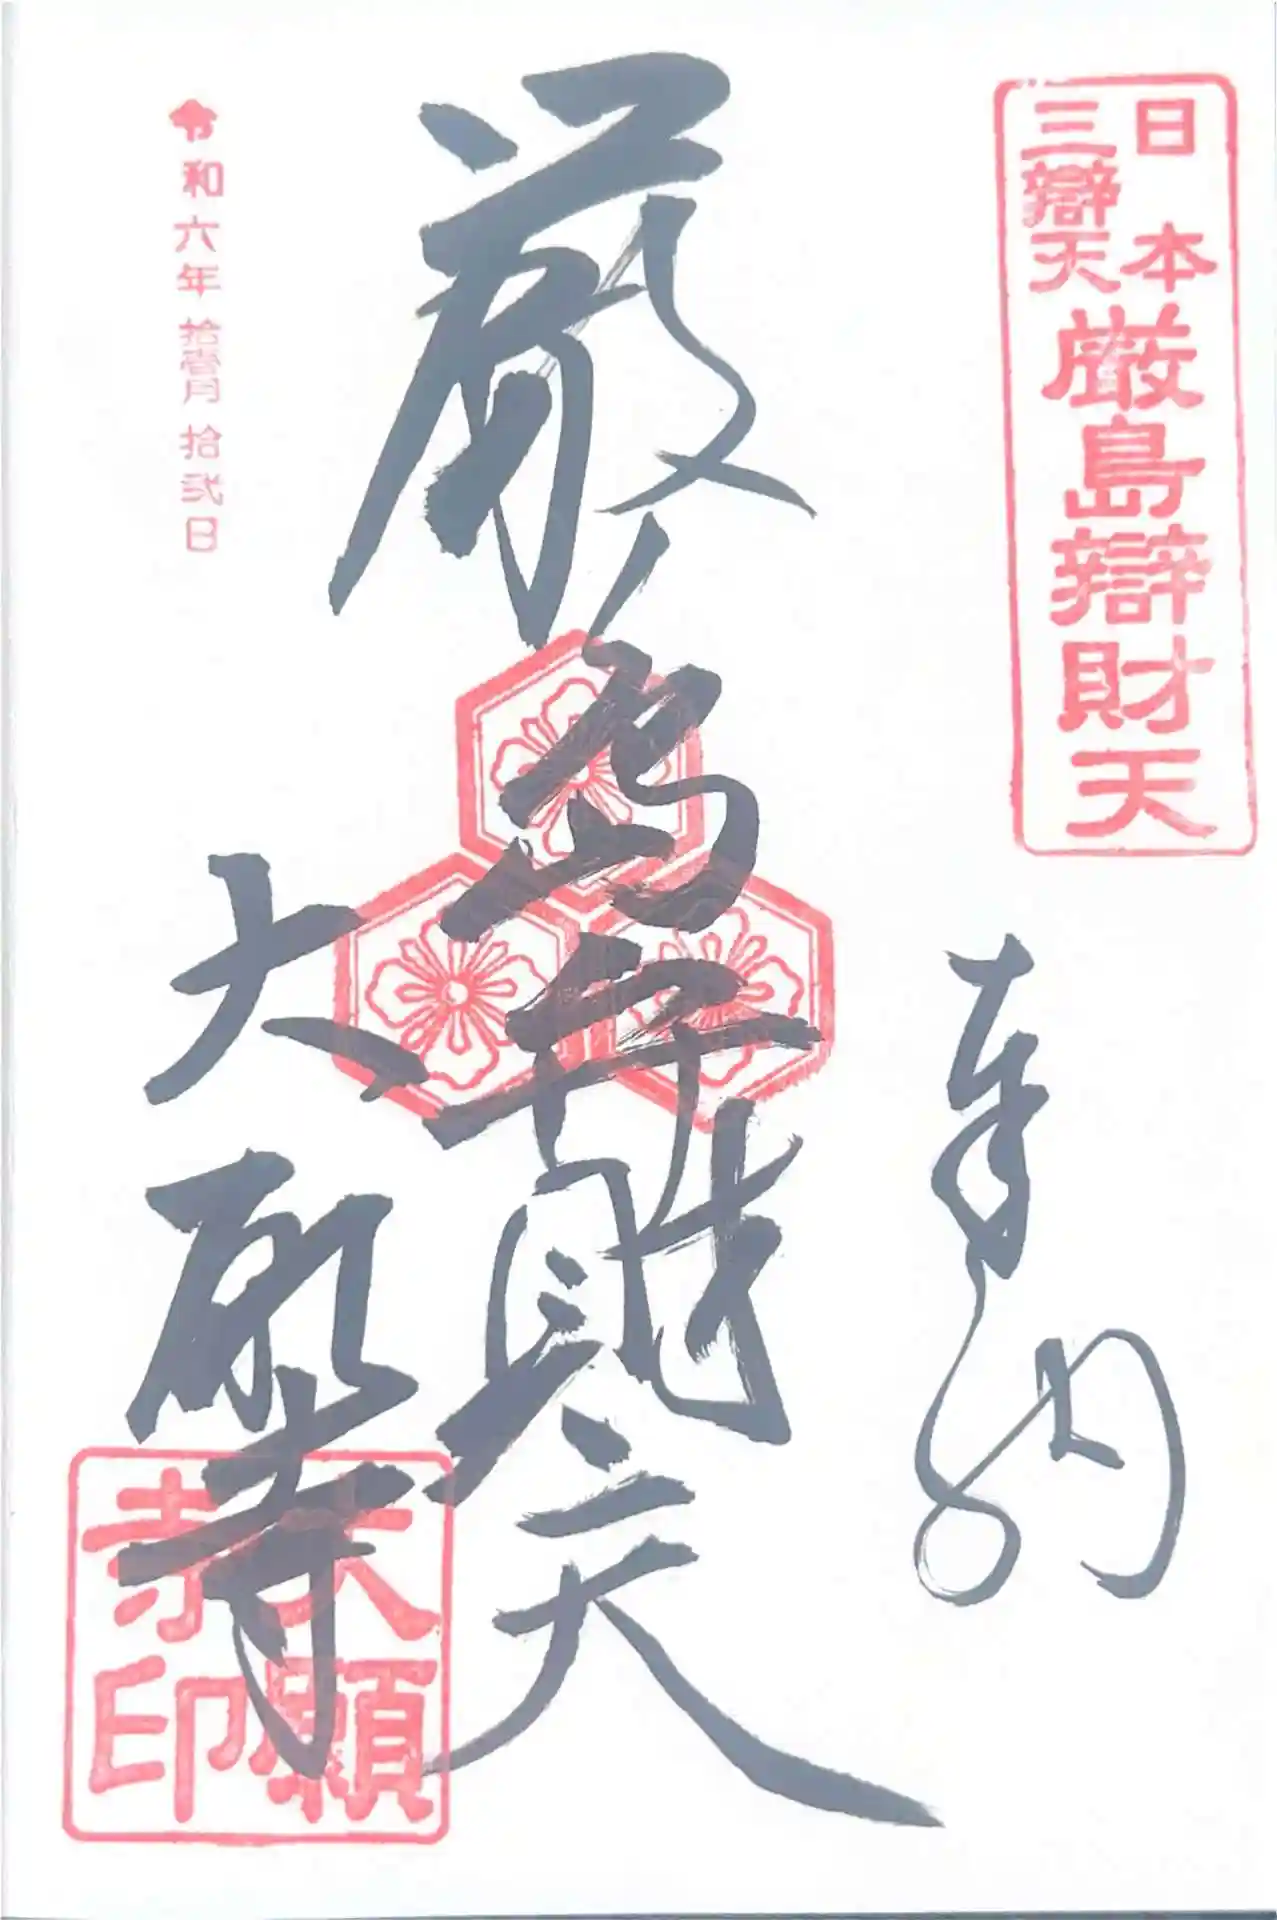 日本
三辯天
厳島辯財天
奉納
厳島弁財天
大願寺
大願
寺印
令和六年拾壹月拾弐日